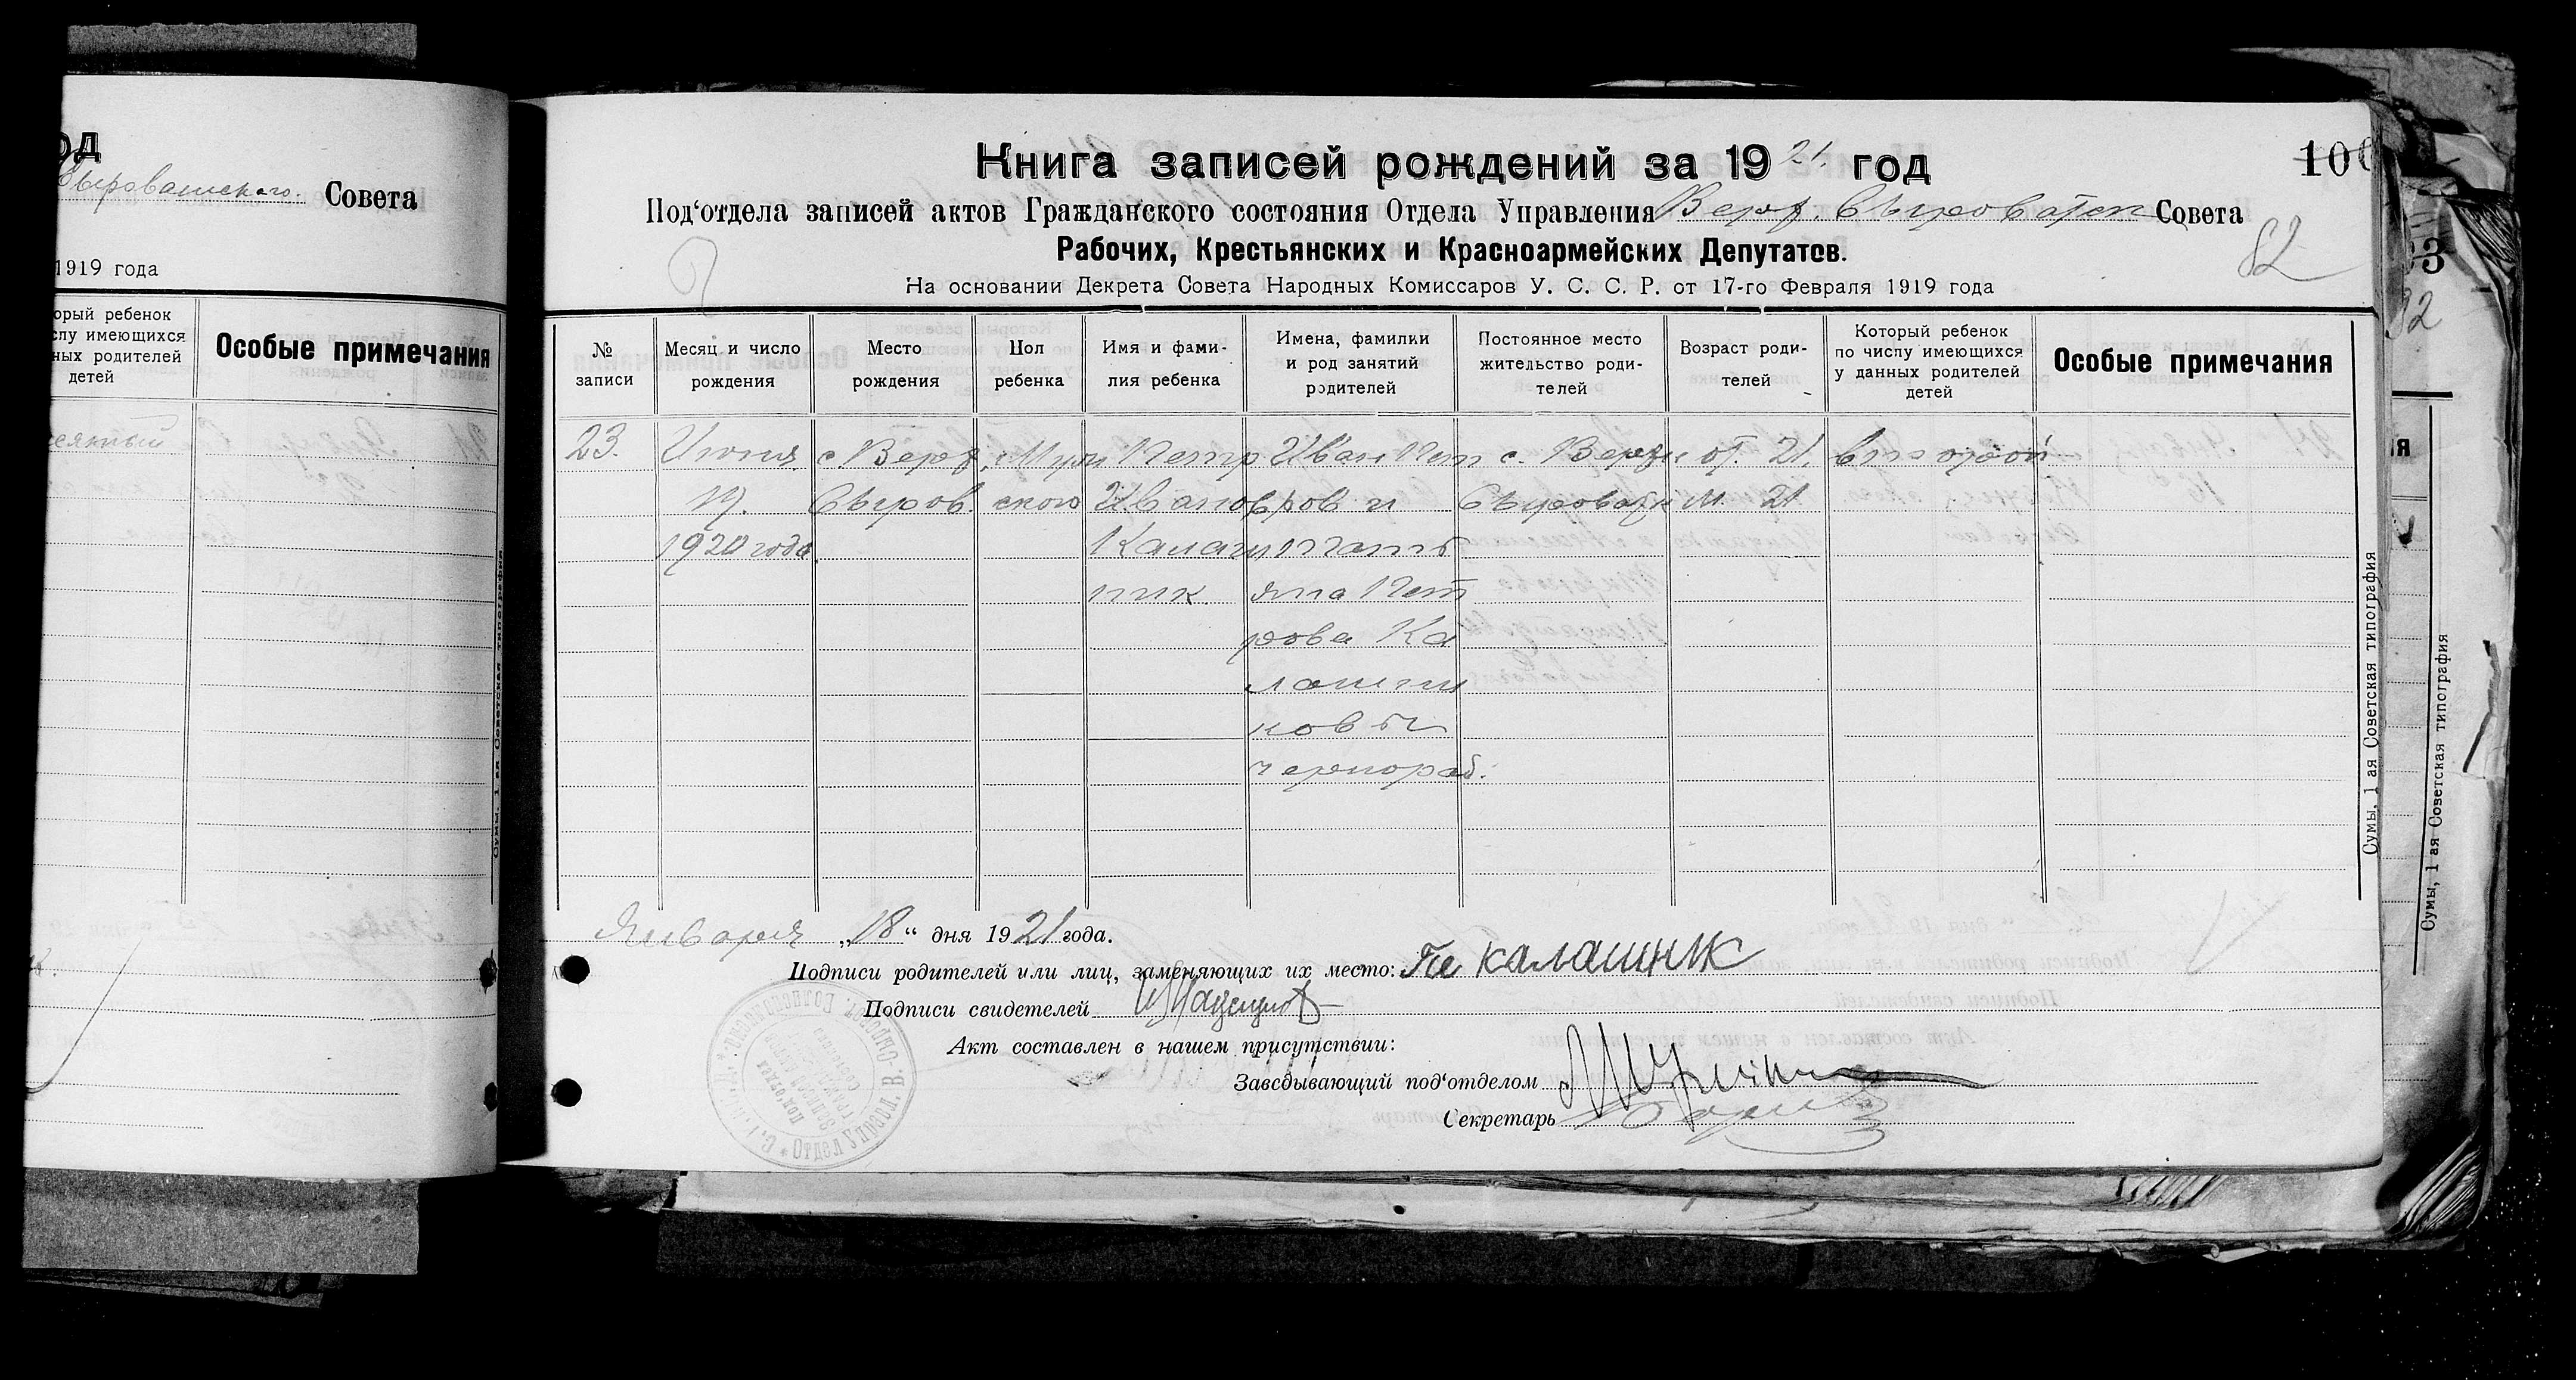 од
Сыроватского. Совета
1919 года
орый ребенок
слу имеющихся
ных родителей
детей
Особые примечания
Сумы, 1 ая Советская типография
Книга записей рождений за 1921. год
Под‘отдела записей актов Гражданского состояния Отдела Управления Верх. Сыроватск Совета
Рабочих, Крестьянских и Красноармейских Депутатов.
На основании Декрета Совета Народных Комиссаров У. С. С. Р. от 17-го Февраля 1919 года
100
82
№ записи
Месяц и число рождения
Место рождения
Пол ребенка
Имя и фами-
лия ребенка
Имена, фамилии
и род занятий
родителей
Постоянное место
жительство роди-
телей
Возраст роди-
телей
Который ребенок
по числу имеющихся
у данных родителей
детей
Особые примечания
23. Июня с Верх. Муж Петр Иван Пет с. Верхн от. 21. второй
17. Сыров. ского Иванов ров и Сыроватк м. 21
1920 года Калаш Татъ
ник. яна Пет
рова Ка
лашни
ковы
чернораб.
Января „18“ дня 1921 года.
Подписи родителей или лиц, заменяющих их место: Пе калашник
Подписи свидетелей
Акт составлен в нашем присутствии:
Заведывающий под‘отделом
Секретарь
Сумы, 1 ая Советская типография
3
32
я
Сумы, 1 ая Советская типография